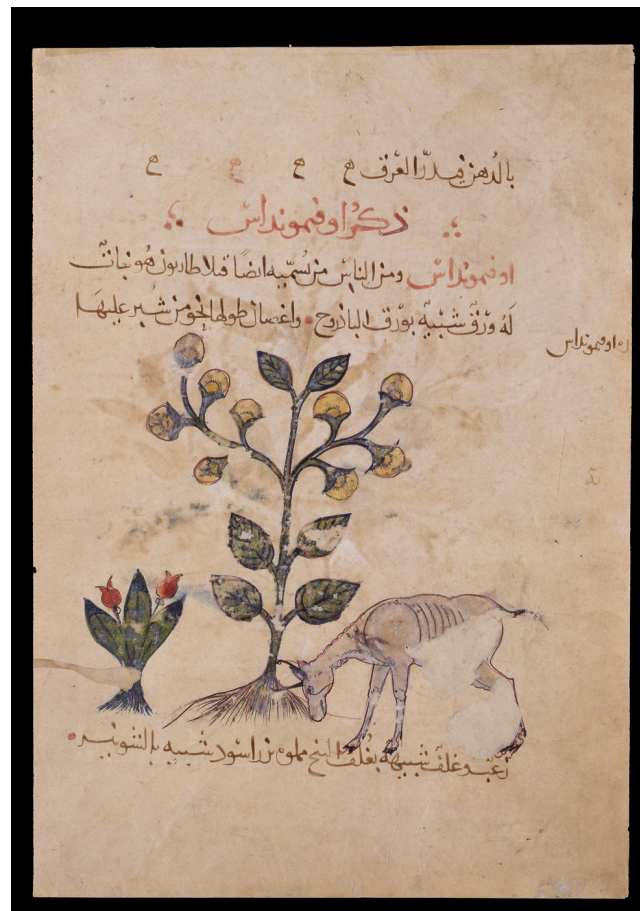 بالدهن فيدرّ العرق ۾ ۾ ۾ ۾
ذكر اوفيمونداس
اوفيمونداس ومن الناس من يُسمّيه ايضًا قلاطاريون هُو نبات
لَهُ ورَق شبيه بورَق الباذروج واغصان طولها نحو من شبر عليهَا
اوفيمونداس
زغب وغلف شبيهة بغُلف البنج مملوه بزراسود شبيه بالشونيز